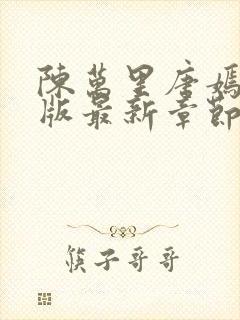 陳萬里唐嫣
版最新章節
筷子哥哥